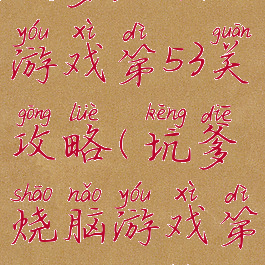 yóu xì dì guān
游戏第53关
gōng lüè kēng diē
攻略(坑爹
shāo nǎo yóu xì dì
烧脑游戏第